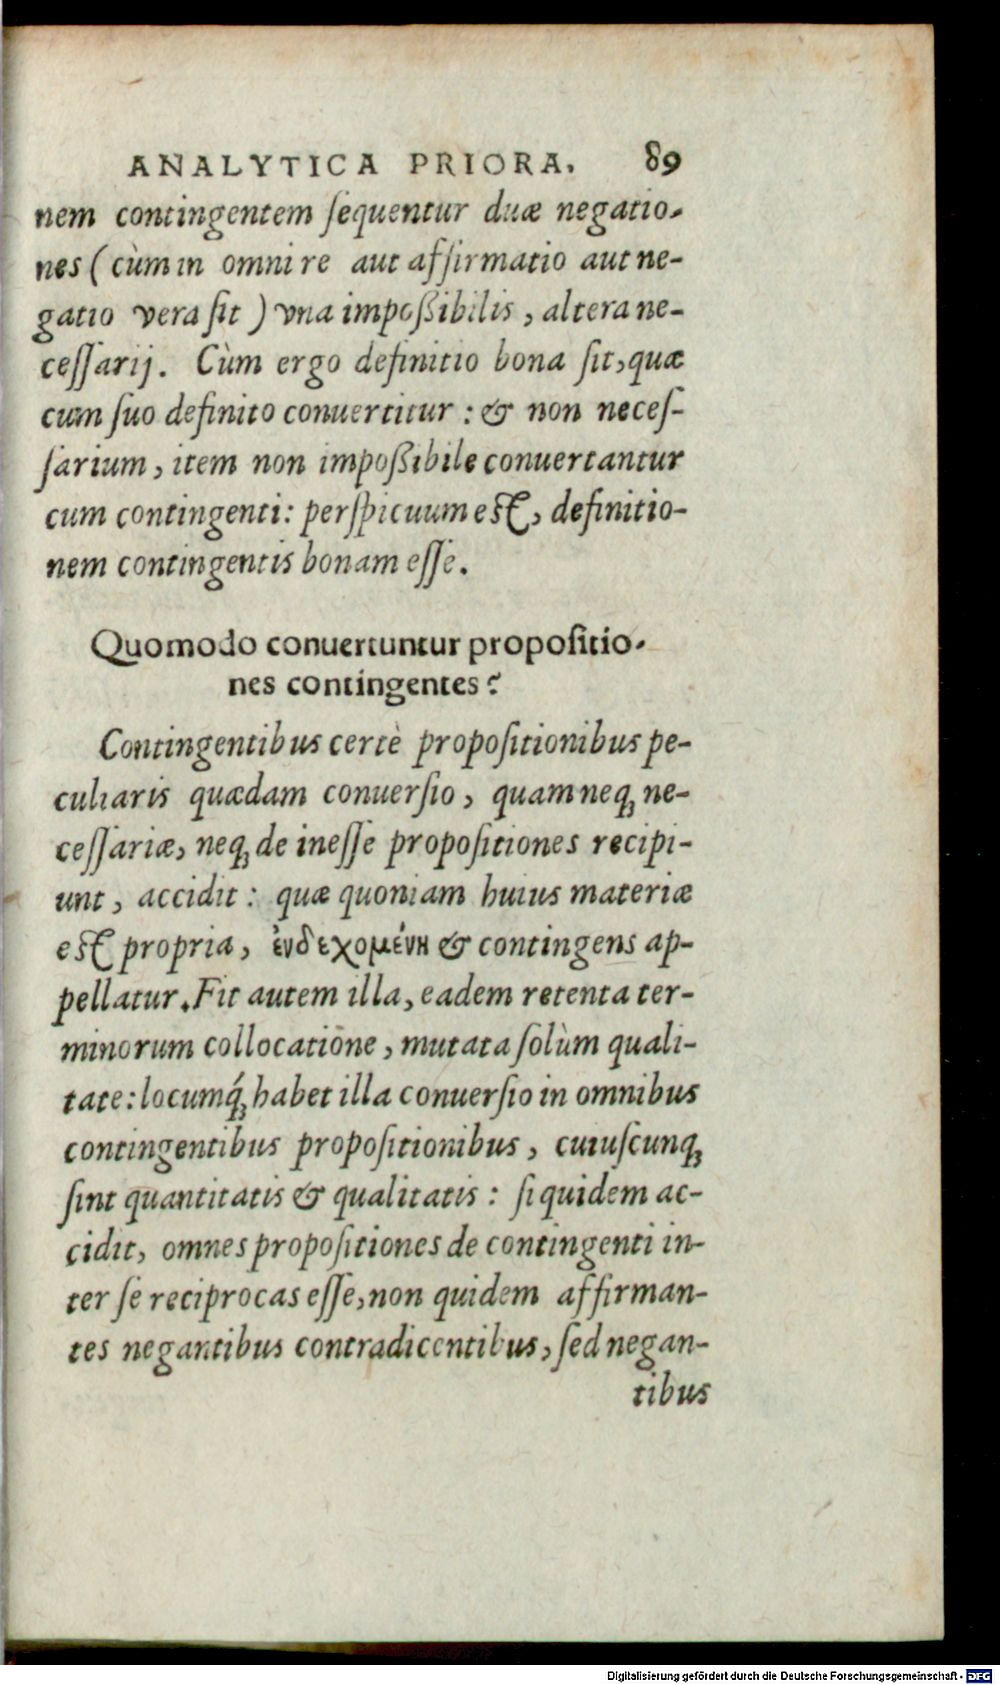 ANALYTICA PRIORA. 89
nem contingentem sequentur duæ negatio-
nes (cùm in omni re aut affirmatio aut ne-
gatio vera sit) vna impoßibilis, altera ne-
cessarij. Cùm ergo definitio bona sit, quæ
cum suo definito conuertitur: & non neces-
sarium, item non impoßibile conuertantur
cum contingenti: perspicuum est, definitio-
nem contingentis bonam esse.
Quomodo conuertuntur propositio-
nes contingentes?
Contingentibus certè propositionibus pe-
culiaris quædam conuersio, quam neq; ne-
cessariæ, neq; de inesse propositiones recipi-
unt, accidit: quæ quoniam huius materiæ
est propria, ἐνδεχομένη & contingens ap-
pellatur. Fit autem illa, eadem retenta ter-
minorum collocatione, mutata solùm quali-
tate: locumq́; habet illa conuersio in omnibus
contingentibus propositionibus, cuiuscunq;
sint quantitatis & qualitatis: siquidem ac-
cidit, omnes propositiones de contingenti in-
ter se reciprocas esse, non quidem affirman-
tes negantibus contradicentibus, sed negan-
tibus
Digitalisierung gefördert durch die Deutsche Forschungsgemeinschaft - DFG